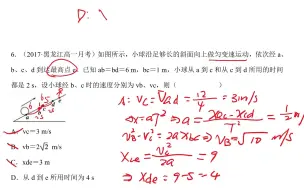 D: \
6. (2017·黑龙江高一月考) 如图所示，小球沿足够长的斜面向上做匀变速运动，依次经a、
b、c、d到达最高点e. 已知ab=bd=6 m, bc=1 m, 小球从a到c和从c到d所用的时间
都是2 s, 设小球经b、c时的速度分别为vb、vc, 则 ( )
A. vc=3 m/s
B. vb=2√2 m/s
C. xde=3 m
D. 从d到e所用时间为4 s
A: Vc = V̄ad = 12/4 = 3m/s
Δx=aT² ⇒ a = (xac-xcd)/T² = 1/2 m/
VB²-Vc²=2a xbc ⇒ VB=√10 m/s
Xce = Vc²/2a = 9
⇒ Xde = 9-5 = 4